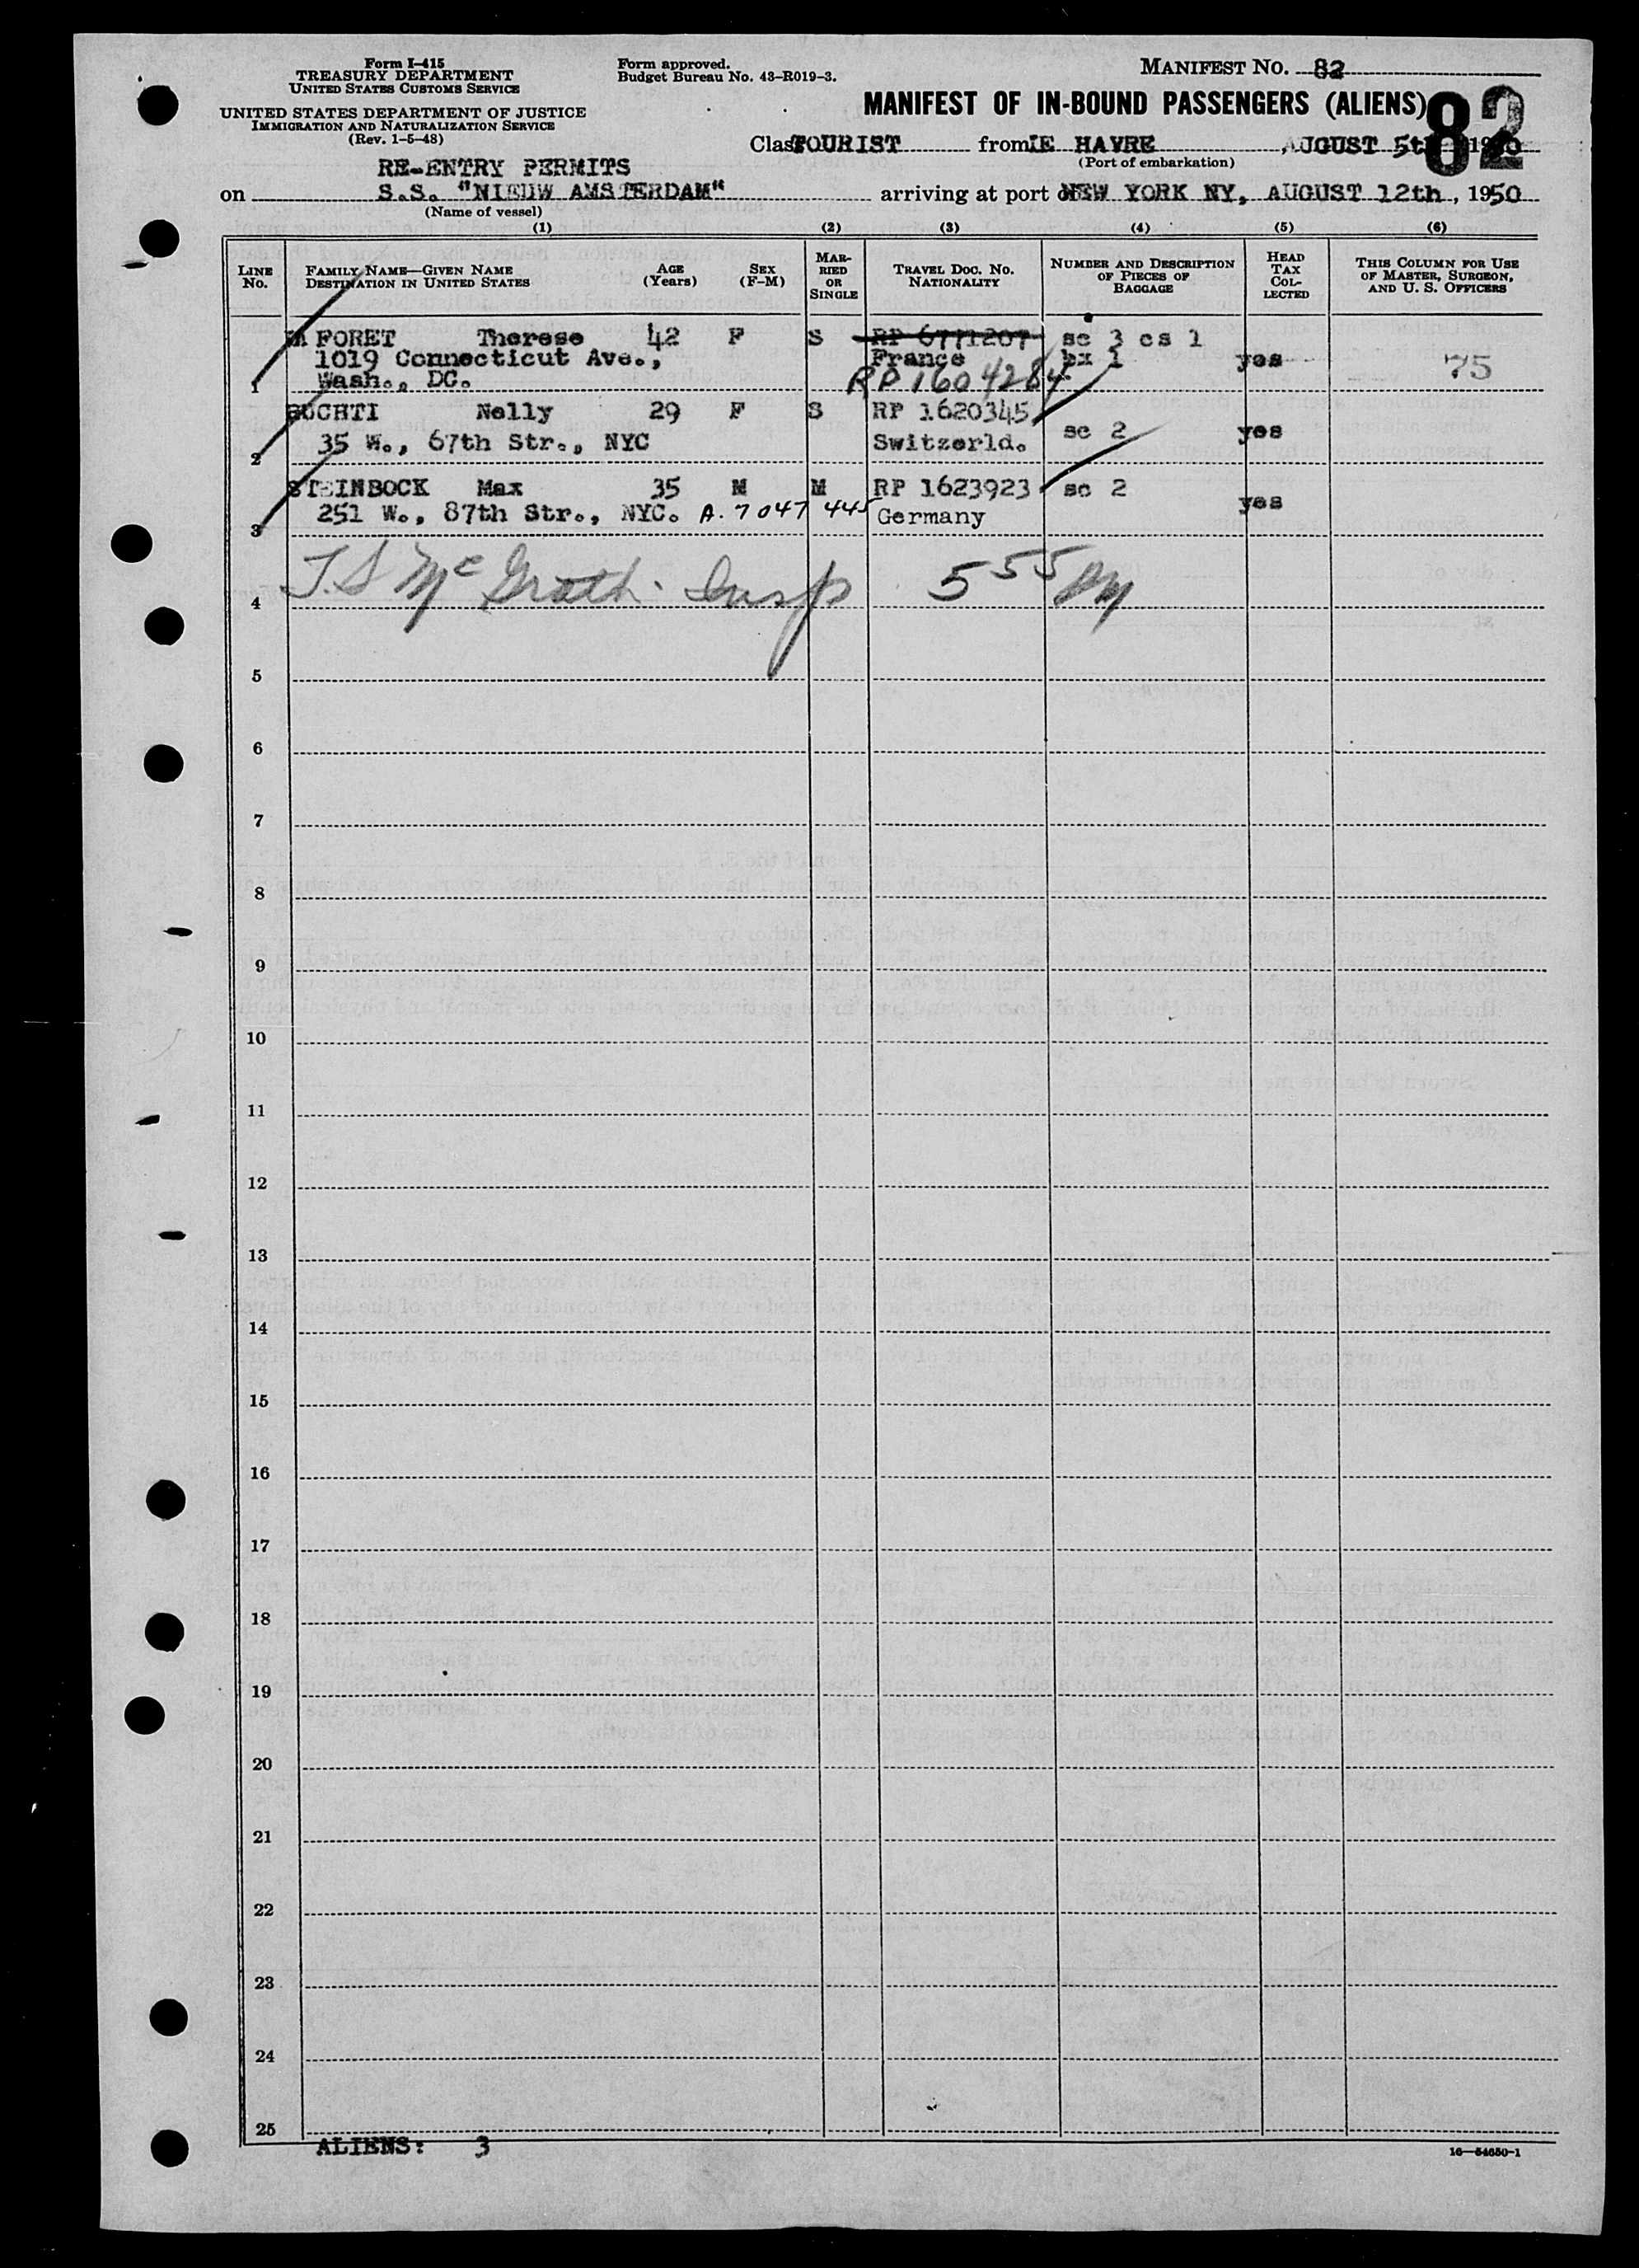 Form I-415
TREASURY DEPARTMENT
UNITED STATES CUSTOMS SERVICE
UNITED STATES DEPARTMENT OF JUSTICE
IMMIGRATION AND NATURALIZATION SERVICE
(Rev. 1-5-48)
Form approved.
Budget Bureau No. 43-R019-3.
MANIFEST NO. 82
MANIFEST OF IN-BOUND PASSENGERS (ALIENS)
82
Class TOURIST from LE HAVRE, AUGUST 5th, 1950
(Port of embarkation)
RE-ENTRY PERMITS
on S.S. "NIEUW AMSTERDAM" arriving at port of NEW YORK NY, AUGUST 12th, 1950
(Name of vessel)
(1) (2) (3) (4) (5) (6)
LINE NO.
FAMILY NAME—GIVEN NAME
DESTINATION IN UNITED STATES
AGE (Years)
SEX (F-M)
MARRIED OR SINGLE
TRAVEL DOC. NO. NATIONALITY
NUMBER AND DESCRIPTION OF PIECES OF BAGGAGE
HEAD TAX COLLECTED
THIS COLUMN FOR USE OF MASTER, SURGEON, AND U. S. OFFICERS
FORET Therese 42 F S RP 6771207 sc 3 cs 1
1019 Connecticut Ave., France bx 1 yes 75
1 Wash., DC. RP 1604284
BUCHTI Nelly 29 F S RP 1620345
35 W., 67th Str., NYC Switzerld. sc 2 yes
2
STEINBOCK Max 35 M M RP 1623923 sc 2
251 W., 87th Str., NYC. A. 7 047 445 Germany yes
3
T. S McGrath. Insp 5 55 PM
4
5
6
7
8
9
10
11
12
13
14
15
16
17
18
19
20
21
22
23
24
25
ALIENS: 3
16—54650-1